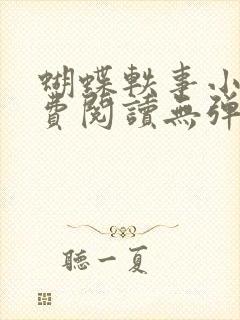 蝴蝶軼事小
費閱讀無彈
聽一夏